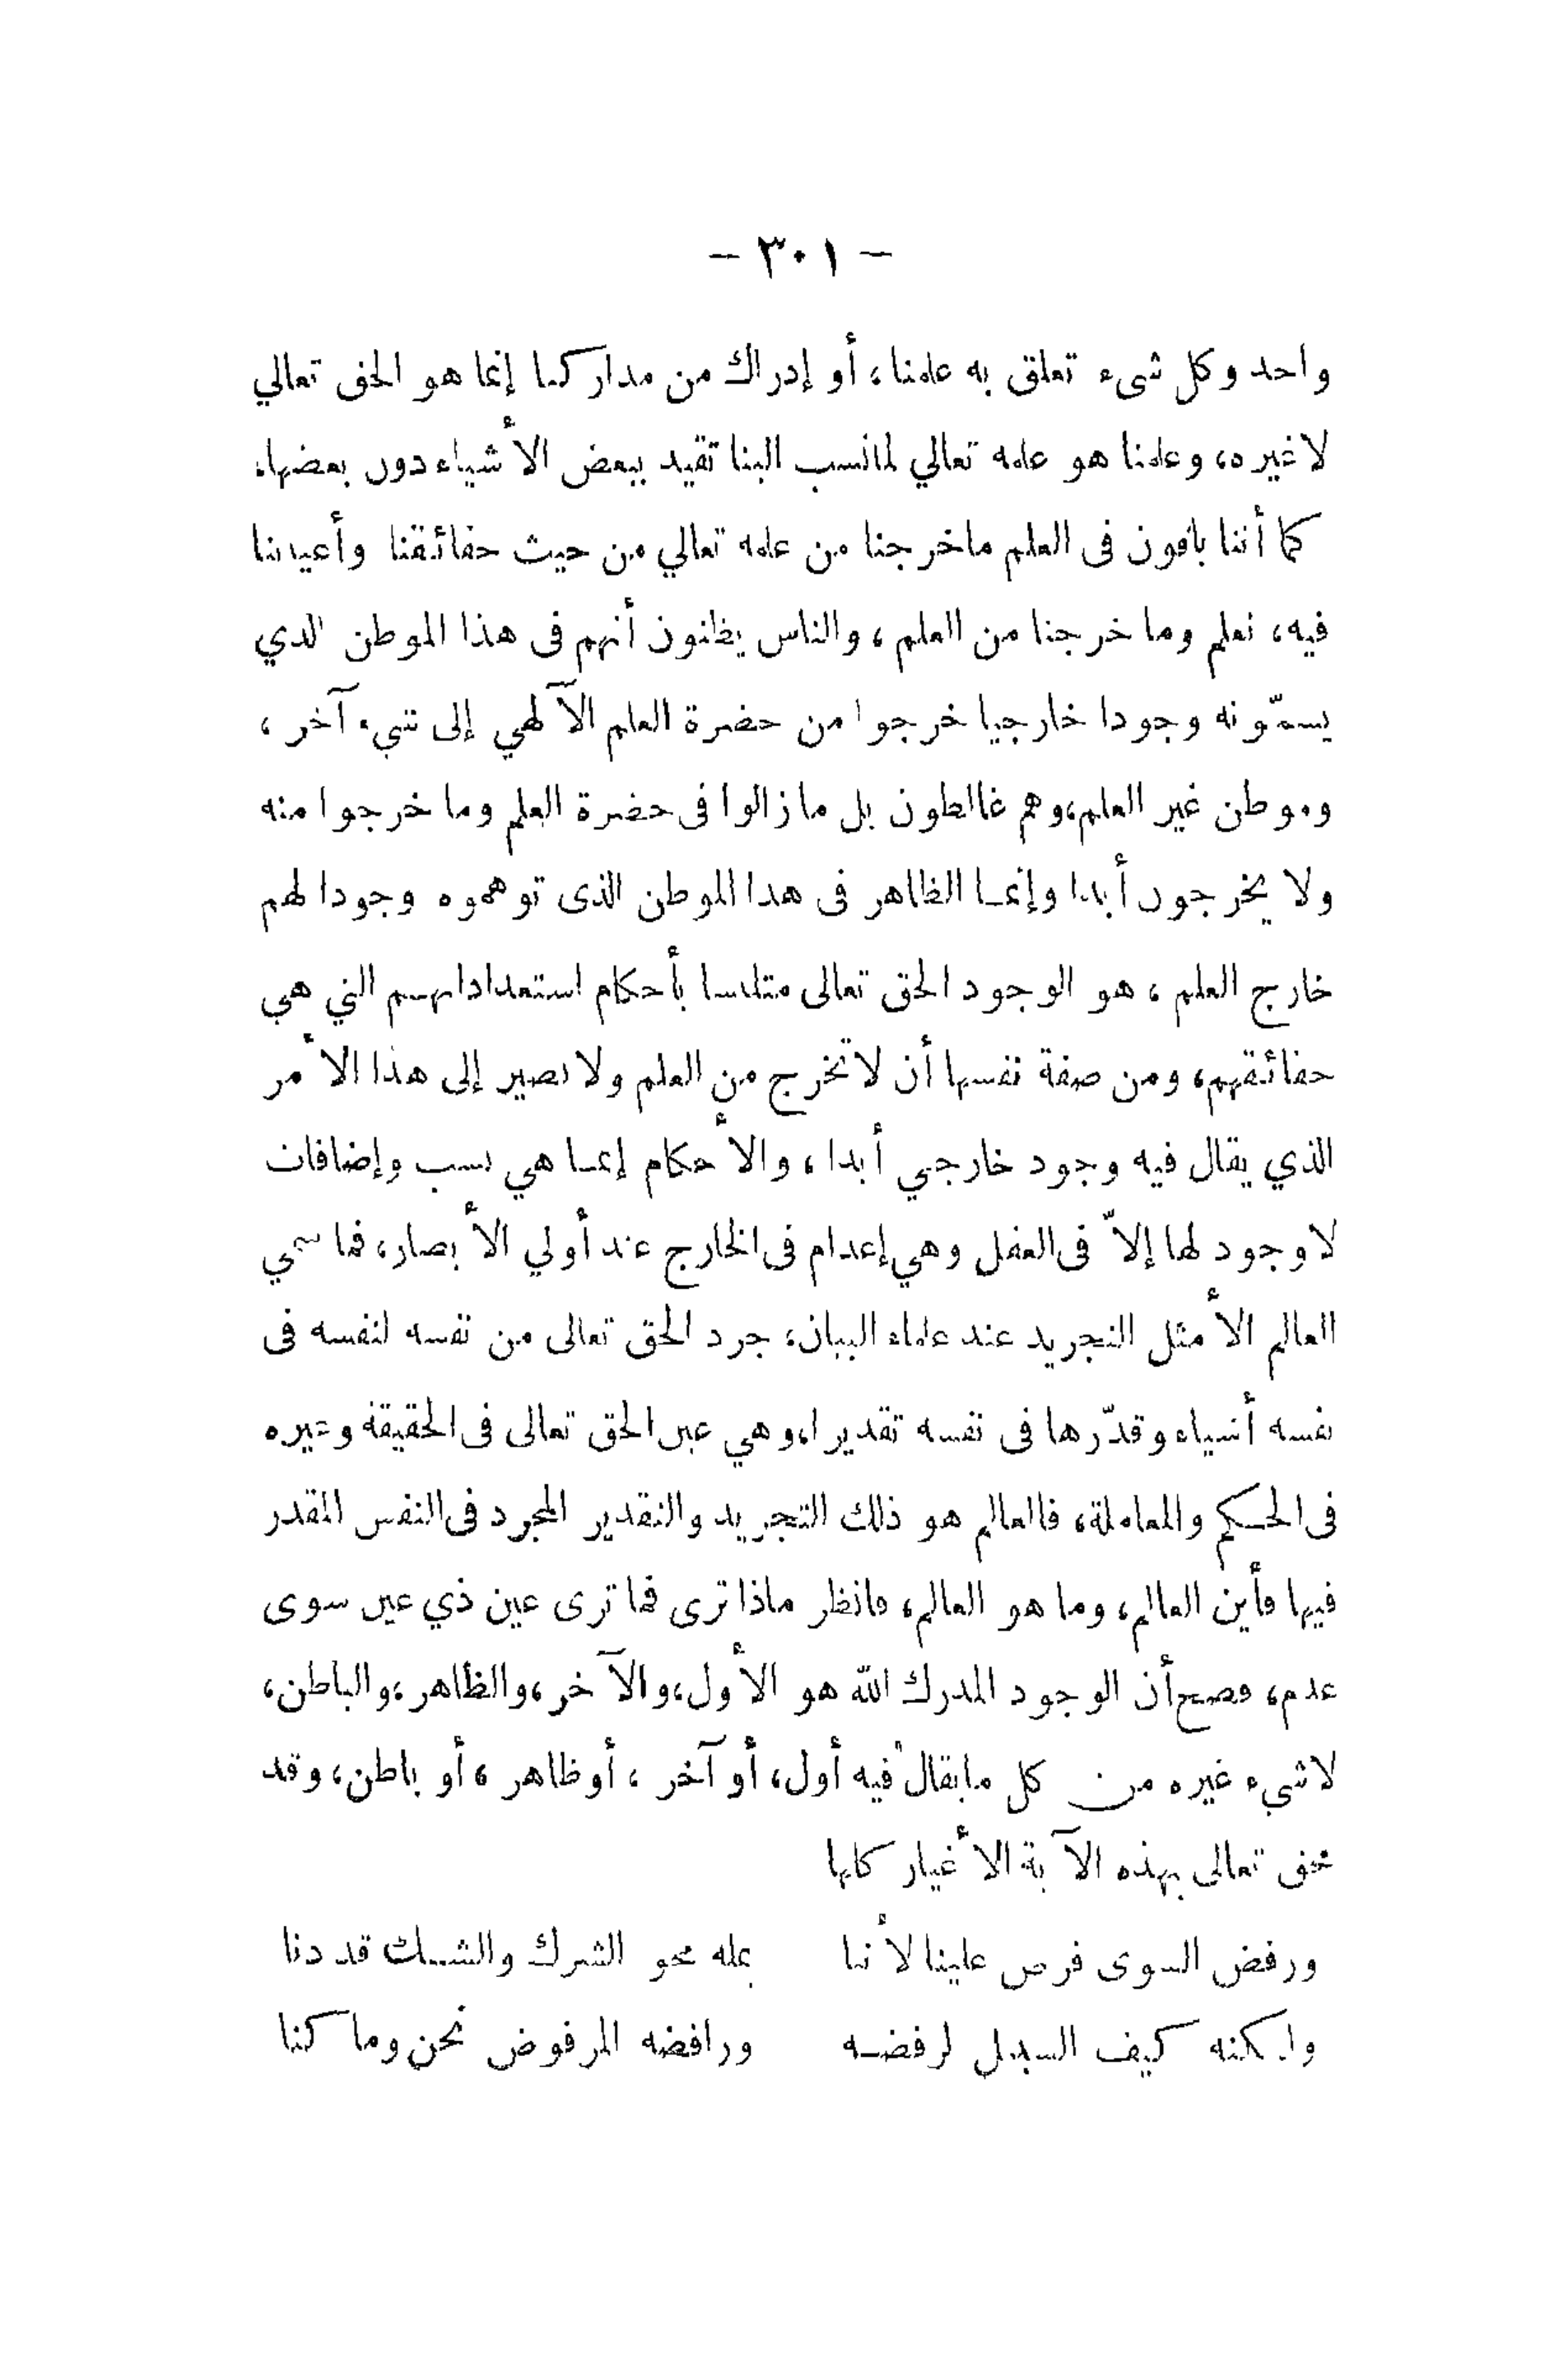 — ٣٠١ —
واحد وكل شىء تعلق به علمنا، أو إدراك من مداركنا إنما هو الحق تعالي
لاغيره، وعلمنا هو علمه تعالي لمانسب الينا تقيد ببعض الأشياء دون بعضها،
كما أننا باقون فى العلم ماخرجنا من علمه تعالي من حيث حقائقنا وأعياننا
فيه، نعلم وما خرجنا من العلم، والناس يظنون أنهم فى هذا الموطن الذي
يسمّونه وجودا خارجيا خرجوا من حضرة العلم الآلهي إلى شيء آخر،
وموطن غير العلم،وهم غالطون بل مازالوا فى حضرة العلم وما خرجوا منه
ولا يخرجون أبدا وإنما الظاهر فى هذا الموطن الذى توهموه وجودا لهم
خارج العلم، هو الوجود الحق تعالى متلبسا بأحكام استعداداتهم التي هي
حقائقهم، ومن صفة نفسها أن لاتخرج من العلم ولا تصير إلى هذا الأمر
الذي يقال فيه وجود خارجي أبدا، والأحكام إنما هي نسب وإضافات
لاوجود لها إلاّ فى العقل وهي إعدام فى الخارج عند أولي الأبصار، فما سمي
العالم الأمثل التجريد عند علماء البيان، جرد الحق تعالى من نفسه لنفسه فى
نفسه أشياء وقدّرها فى نفسه تقديرا،وهي عين الحق تعالى فى الحقيقة وغيره
فى الحكم والمعاملة، فالعالم هو ذلك التجريد والتقدير المجرد فى النفس المقدر
فيها فأين العالم، وما هو العالم، فانظر ماذا ترى فما ترى عين ذي عين سوى
عدم، فصح أن الوجود المدرك الله هو الأول،والآخر،والظاهر،والباطن،
لاشيء غيره من كل مايقال فيه أول، أو آخر، أوظاهر، أو باطن، وقد
محق تعالى بهذه الآية الأغيار كلها
ورفض السوى فرض علينا لأننا بمله محو الشرك والشك قد دنا
ولكنه كيف السبيل لرفضه ورافضه المرفوض نحن وما كنا